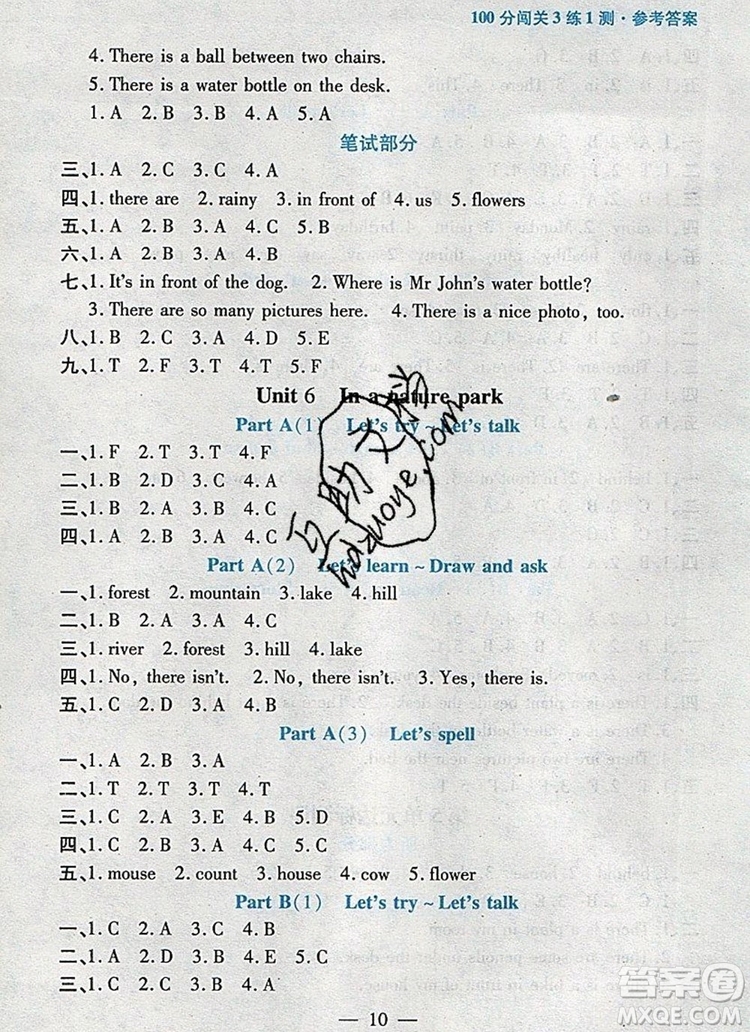 100分闯关3练1测·参考答案
4. There is a ball between two chairs.
5. There is a water bottle on the desk.
1. A 2. B 3. B 4. A 5. A
笔试部分
三、1. A 2. C 3. C 4. A
四、1. there are 2. rainy 3. in front of 4. us 5. flowers
五、1. A 2. B 3. A 4. C 5. A
六、1. A 2. B 3. C 4. A
七、1. It's in front of the dog. 2. Where is Mr John's water bottle?
3. There are so many pictures here. 4. There is a nice photo, too.
八、1. B 2. C 3. A 4. D 5. E
九、1. T 2. F 3. T 4. T 5. F
Unit 6 In a nature park
Part A(1) Let's try ~ Let's talk
一、1. F 2. T 3. T 4. F
二、1. A 2. C 3. C 4. A
三、1. D 2. B 3. C 4. A
四、1. A 2. A 3. C
Part A(2) Let's learn ~ Draw and ask
一、1. forest 2. mountain 3. lake 4. hill
二、1. B 2. A 3. A 4. C
三、1. river 2. forest 3. hill 4. lake
四、1. No, there isn't. 2. No, there isn't. 3. Yes, there is.
五、1. C 2. D 3. A 4. B
Part A(3) Let's spell
一、1. A 2. B 3. A
二、1. T 2. T 3. T 4. T
三、1. C 2. A 3. E 4. B 5. D
四、1. C 2. B 3. A 4. B 5. A
五、1. mouse 2. count 3. house 4. cow 5. flower
Part B(1) Let's try ~ Let's talk
一、1. C 2. C 3. C 4. B
二、1. A 2. A 3. C 4. B 5. C
三、1. C 2. D 3. A 4. B
— 10 —
互助文档
hdzuoye.com
答案圈
MXQE.COM